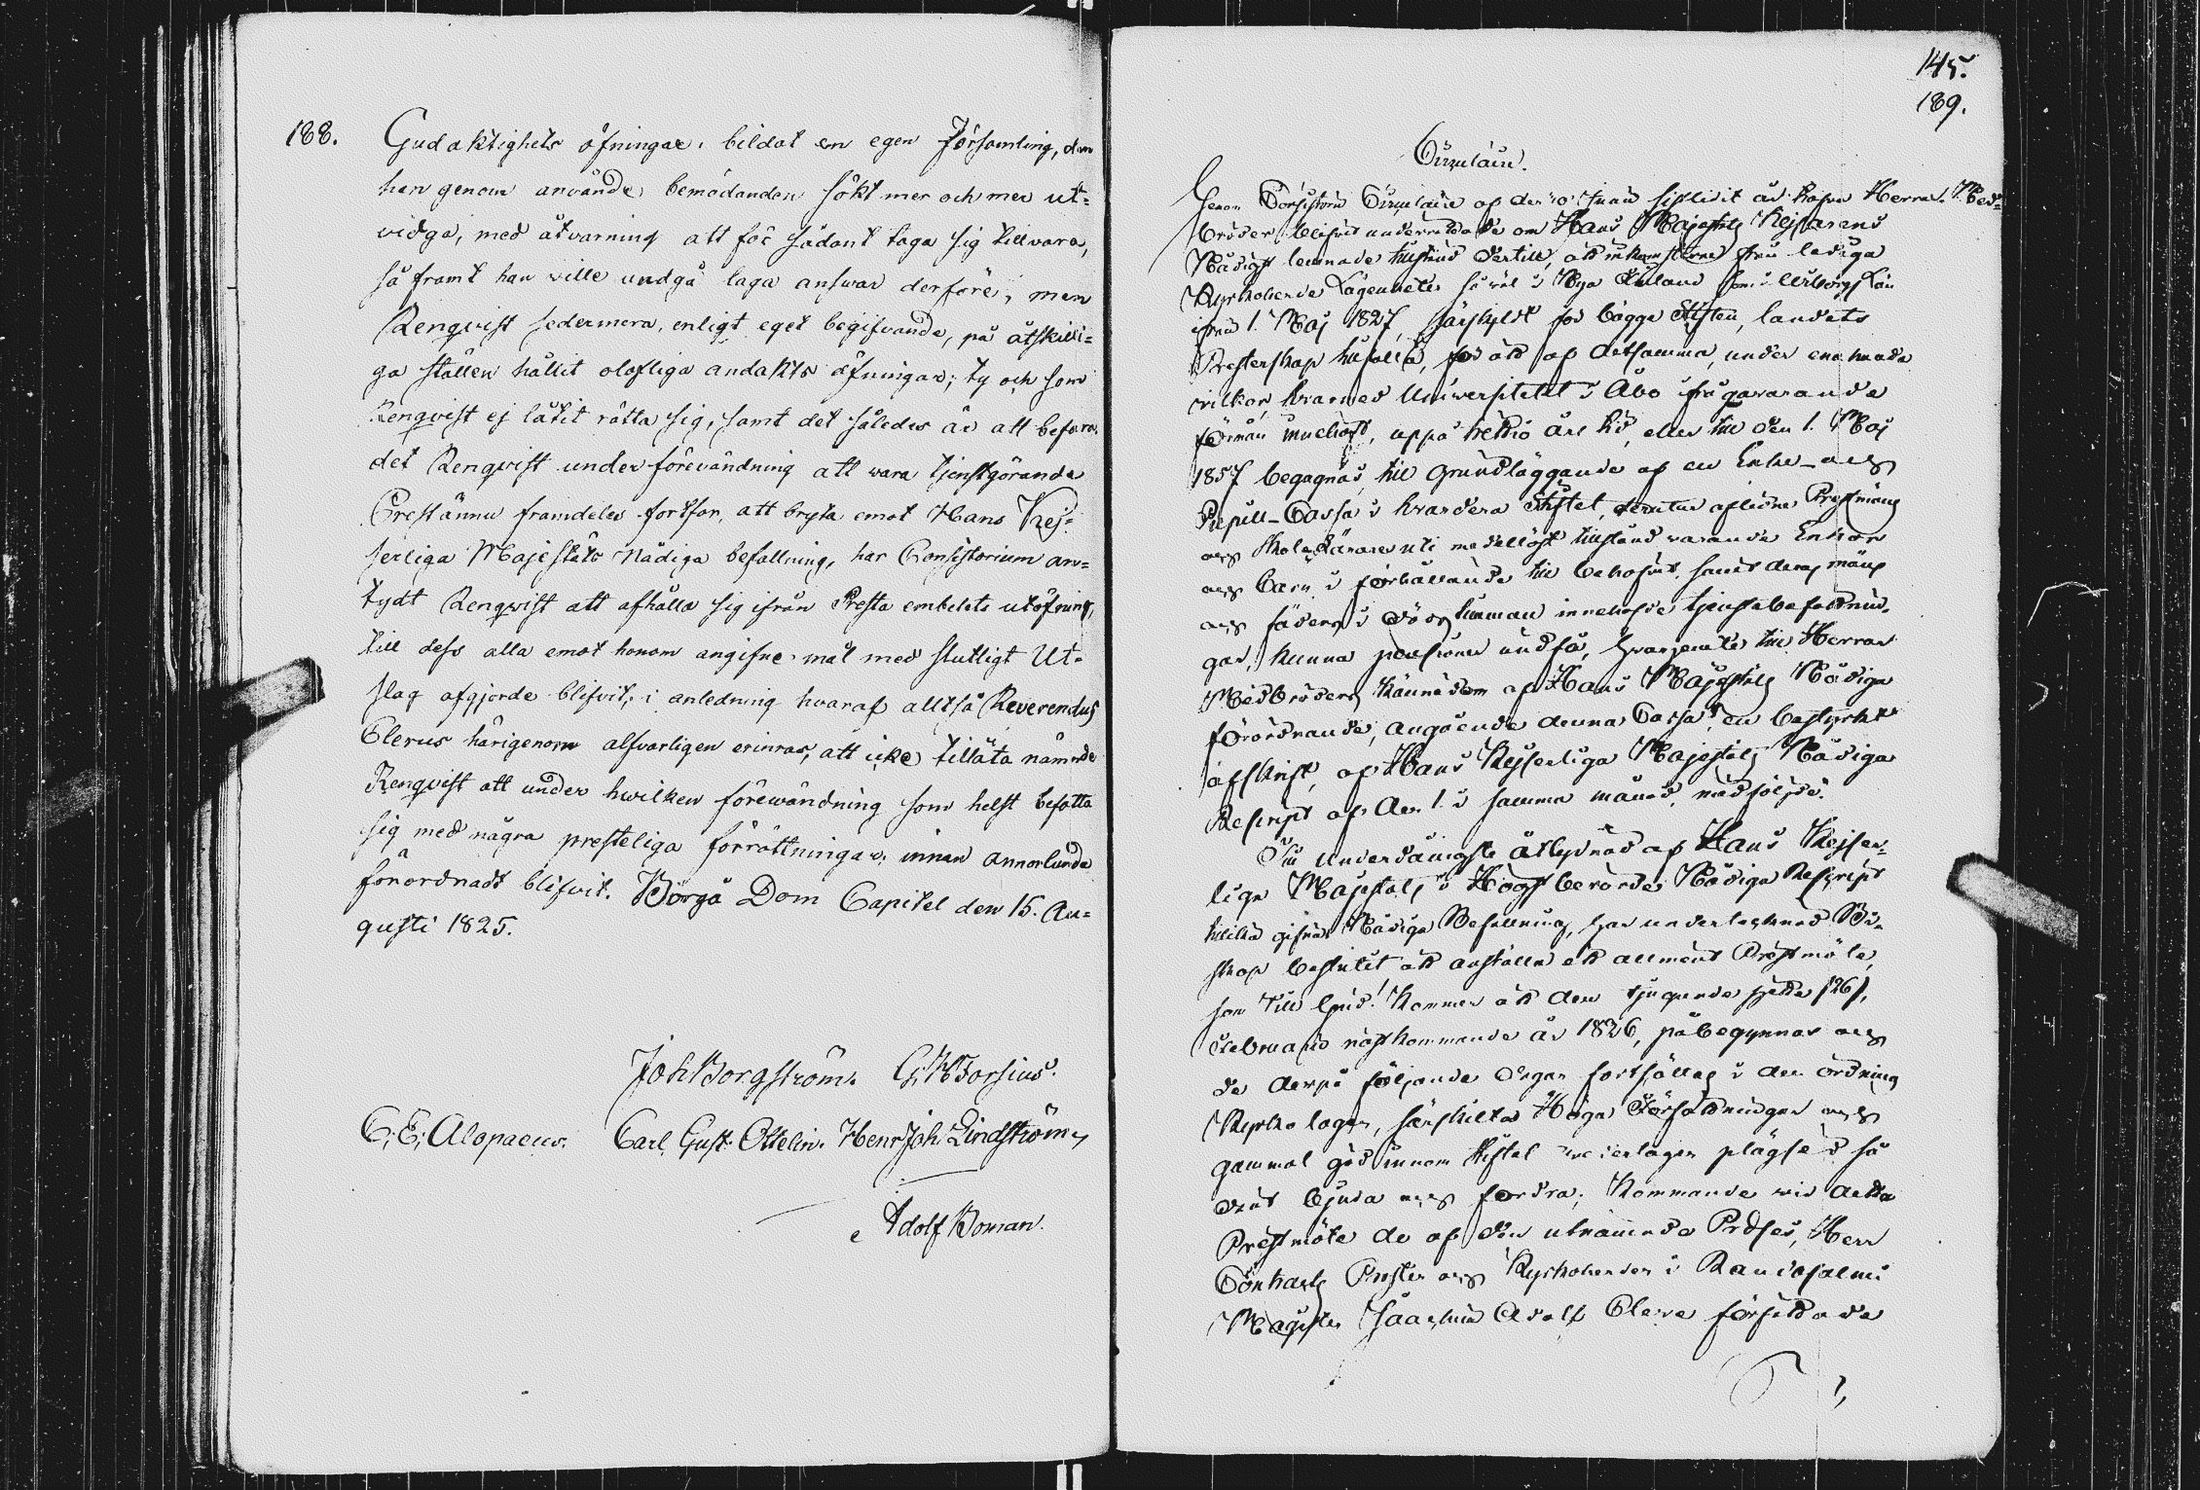 188.
Gudaktighets öfningar, bildat en egen Församling, den
han genom använde bemödanden sökt mer och mer ut=
vidga, med åtvarning att för sådant taga sig tillvara,
så framt han wille undgå laga answar derföre, men
Renqvist sedermera, enligt eget begifvande, på åtskilli=
ga ställen hållit olofliga andakts öfningar; ty och som
Renqvist ej låtit rätta sig, samt det således är att befara,
det Renqvist under förevändning att wara tjenstgörande
Prest ännu framdeles fortfor, att bryta emot Hans Kej=
serliga Majestäts Nådiga befallning, har Consistorium an=
tydt Renqwist att afhålla sig ifrån Presta embetets utöfning,
till dess alla emot honom angifne mål med slutligt Ut=
slag afgjorde blifvit, i anledning hvaraf alltså Reverendus
Clerus härigenom alfvarligen erinras, att icke tillåta nämnde
Renqvist att under hwilken förewändning som helst befatta
sig med några presteliga förrättningar, innan annorlunda
förordnadt blifvit. Borgå Dom Capitel den 15. Au=
gusti 1825.
Joh Borgström. G. W. Borsius.
C. E. Alopaeus. Carl Gust. Ottelin. Henr Joh. Lindström,
Adolf Boman.
145.
189.
Circulaire.
Genom Consistorii Circulaire af den 10 Junii sistlidit år hafva Herrar Med=
bröder blifvit underrättade om Hans Majestäts Kejsarens
Nådigst lemnade tillstånd dertill, att inkomsterne från lediga
Kyrkoherde Lägenheter så väl i Nya Finland som i Wiborgs Län
ifrån 1. Maj 1827, särskildt för bägge Stiften, landets
Presterskap tillfalla, för att af detsamma, under enahanda
vilkor, hvarmed Universitetet i Åbo ifrågavarande
förmån innehaft, uppå trettio års tid, eller till den 1. Maj
1857 begagnas, till grundläggande af en Enke- och
Pupill-Cassa i hvardera Stiftet, derutur aflidne Prestmäns
och Skole Lärares uti medellöst tillstånd varande Enkor
och Barn, i förhållande till behofvet, samt deras mäns
och fäders i dödstimman innehafde tjenstebefattnin=
gar, kunna pensioner undfå, hvarjemte till Herrar
Medbröders kännedom af Hans Majestäts Nådiga
förordnande, angående denna Cassa, en bestyrkt
afskrift, af Hans Kejserliga Majestäts Nådiga
Rescript af den 1. i samma månad, medföljde.
Till underdånigste åtlydnad af Hans Kejser=
liga Majestäts i Högstberörde Nådiga Rescript
tillika gifne Nådiga Befallning, har undertecknad Bi=
skop beslutit att anställa ett allment Prestmöte,
som vill Gud! kommer att den tjugonde sjette /26/,
Februarii nästkommande år 1826, påbegynnas och
de derpå följande dagar fortsättas i den ordning
Kyrko lagen, särskilta Höga Författningar och
gammal god innom Stiftet wederlagen plägsed så
dant bjuda och fordra; kommande wid detta
Prestmöte de af den utnämnde Præses, Herr
Contracts Prosten och Kyrkoherden i Randasalmi
Magister Joachim Adolf Cleve författade